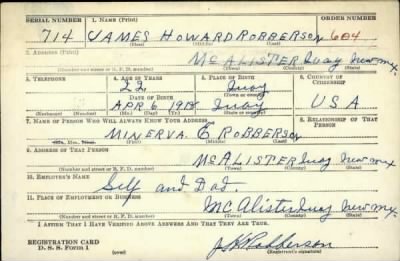 SERIAL NUMBER 1. NAME (Print) ORDER NUMBER
714 JAMES HOWARD ROBBERSON 604
(First) (Middle) (Last)
2. ADDRESS (Print)
McALISTER Quay New Mex.
(Number and street or R. F. D. number) (Town) (County) (State)
3. TELEPHONE 4. AGE IN YEARS 5. PLACE OF BIRTH 6. COUNTRY OF CITIZENSHIP
22 Quay
DATE OF BIRTH (Town or county)
APR 6 1918 Quay USA
(Exchange) (Number) (Mo.) (Day) (Yr.) (State or country)
7. NAME OF PERSON WHO WILL ALWAYS KNOW YOUR ADDRESS 8. RELATIONSHIP OF THAT PERSON
MINERVA E ROBBERSON
(Mr., Mrs., Miss) (First) (Middle) (Last)
9. ADDRESS OF THAT PERSON
McALISTER Quay New Mex
(Number and street or R. F. D. number) (Town) (County) (State)
10. EMPLOYER'S NAME
Self and Dad.
11. PLACE OF EMPLOYMENT OR BUSINESS
McAlister Quay New Mex.
(Number and street or R. F. D. number) (Town) (County) (State)
I AFFIRM THAT I HAVE VERIFIED ABOVE ANSWERS AND THAT THEY ARE TRUE.
REGISTRATION CARD
D. S. S. Form 1 (over) J H Robberson
(Registrant's signature)